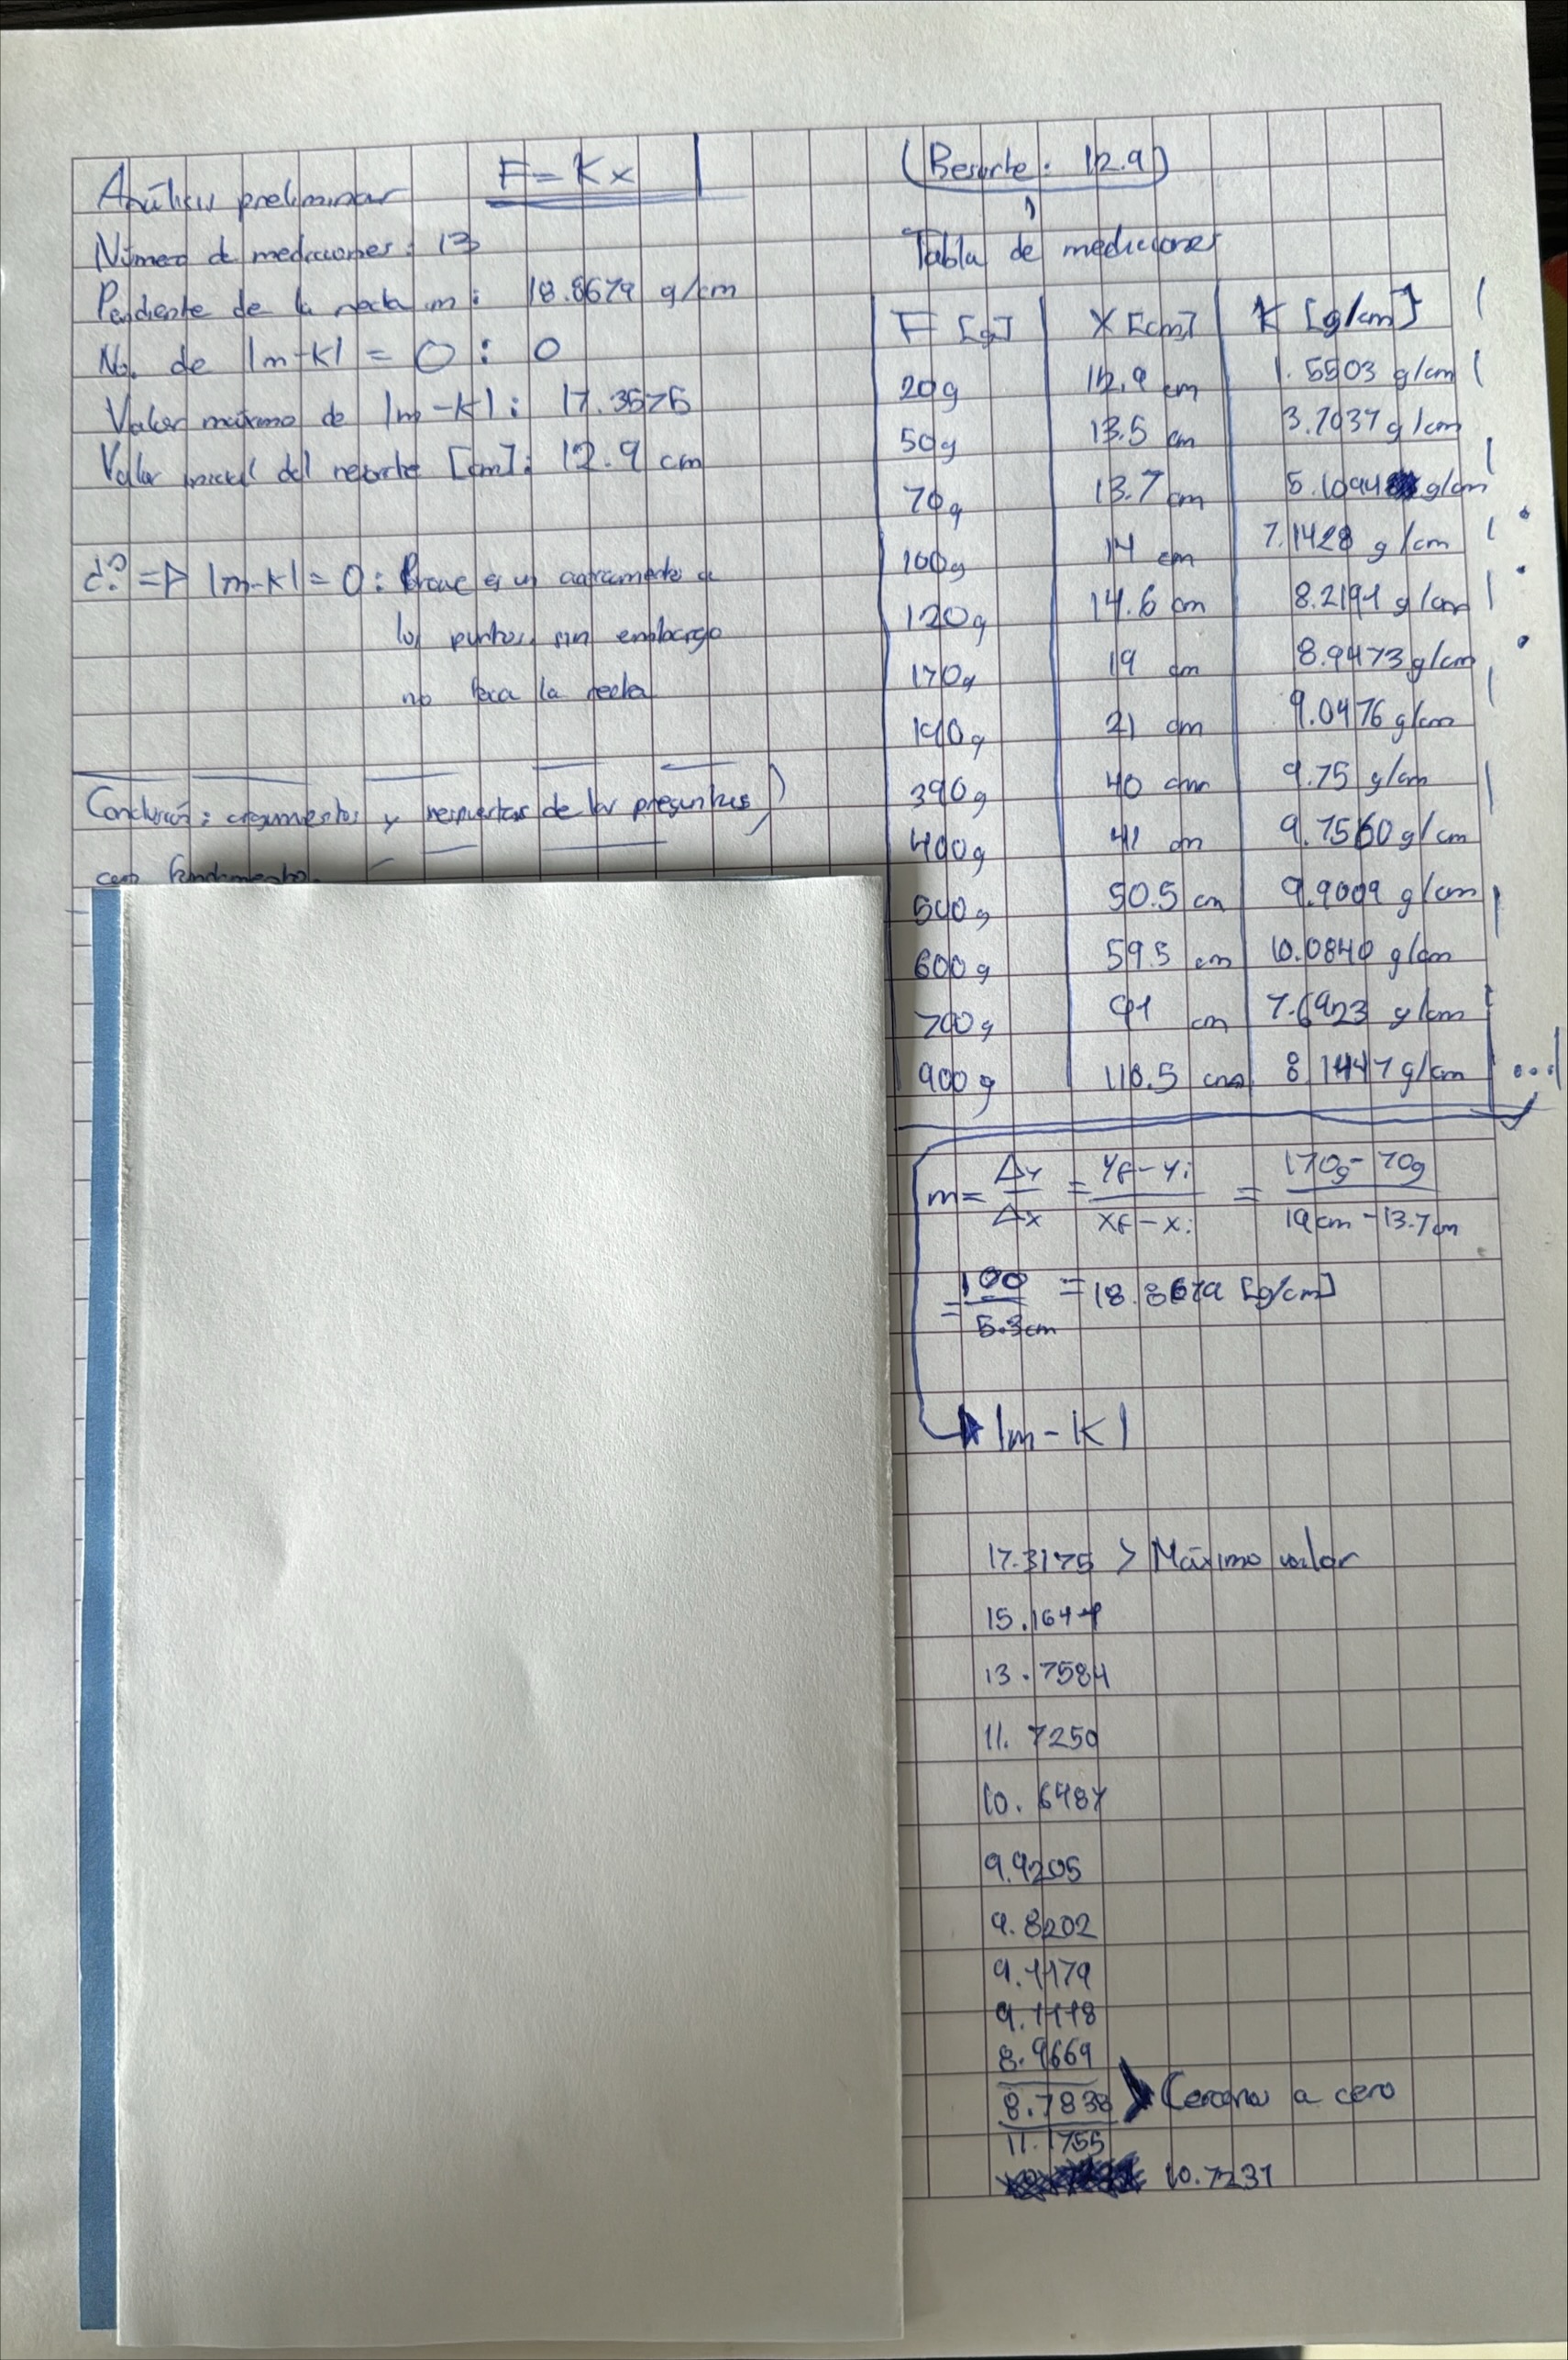 Análisis preliminar
F = Kx
Número de mediciones: 13
Pendiente de la recta m: 18.8679 g/cm
No. de |m-k| = 0 : 0
Valor máximo de |m-k|: 17.3575
Valor inicial del resorte [cm]: 12.9 cm
¿? => |m-k| = 0: es un de
los puntos, sin embargo
no toca la recta
Conclusión: argumentos y respuestas de las preguntas)
con fundamento.
(Resorte: 12.9)
Tabla de mediciones
F [g] X [cm] K [g/cm]
20g 12.9 cm 1.5503 g/cm
50g 13.5 cm 3.7037 g/cm
70g 13.7 cm 5.1094 g/cm
100g 14 cm 7.1428 g/cm
120g 14.6 cm 8.2191 g/cm
170g 19 cm 8.9473 g/cm
190g 21 cm 9.0476 g/cm
390g 40 cm 9.75 g/cm
400g 41 cm 9.7560 g/cm
500g 50.5 cm 9.9009 g/cm
600g 59.5 cm 10.0840 g/cm
700g 91 cm 7.6923 g/cm
900g 110.5 cm 8.1447 g/cm
m = Δy/Δx = yf - yi/xf - xi = 170g - 70g/19cm - 13.7cm
= 100/5.3cm = 18.8679 [g/cm]
|m - K|
17.3175 > Máximo valor
15.1644
13.7584
11.7250
10.6487
9.9205
9.8202
9.1179
9.1118
8.9669
8.7838 > Cercano a cero
11.1755
10.7231